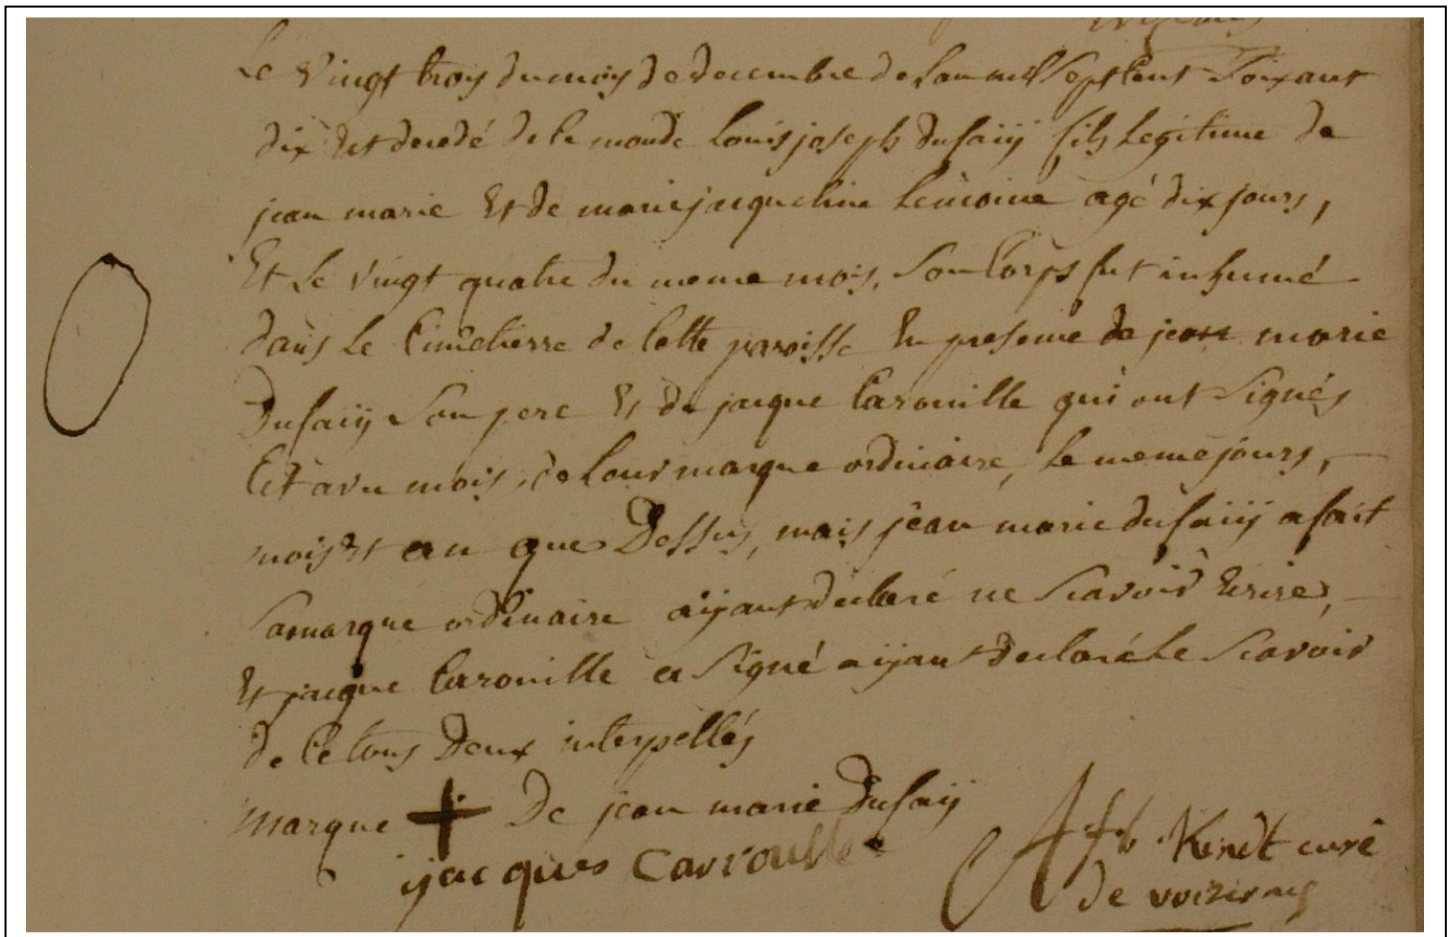 Le vingt trois du mois de decembre de l'an mil sept cent soixant
dix est decedé de ce monde Louis joseph Dufaiÿ fils legitime de
jean marie Et de marie jacqueline Lemoine agé dix jours,
Et le vingt quatre du meme mois, son Corps fut inhumé
dans le Cimetierre de Cette parroisse En presence de jean marie
Dufaiÿ son pere Et de jacque Carouille qui ont signés
Cet avu mois, de leur marque ordinaire, le meme jours,
mois et an que Dessus, mais jean marie dufaiÿ a fait
sa marque ordinaire aÿant declaré ne scavoir Ecrire,
Et jacque Carouille a signé aÿant declaré le scavoir
de Ce tous Deux interpellés
marque + De jean marie Dufaiÿ
jacques Carroulle
curé
de voisins